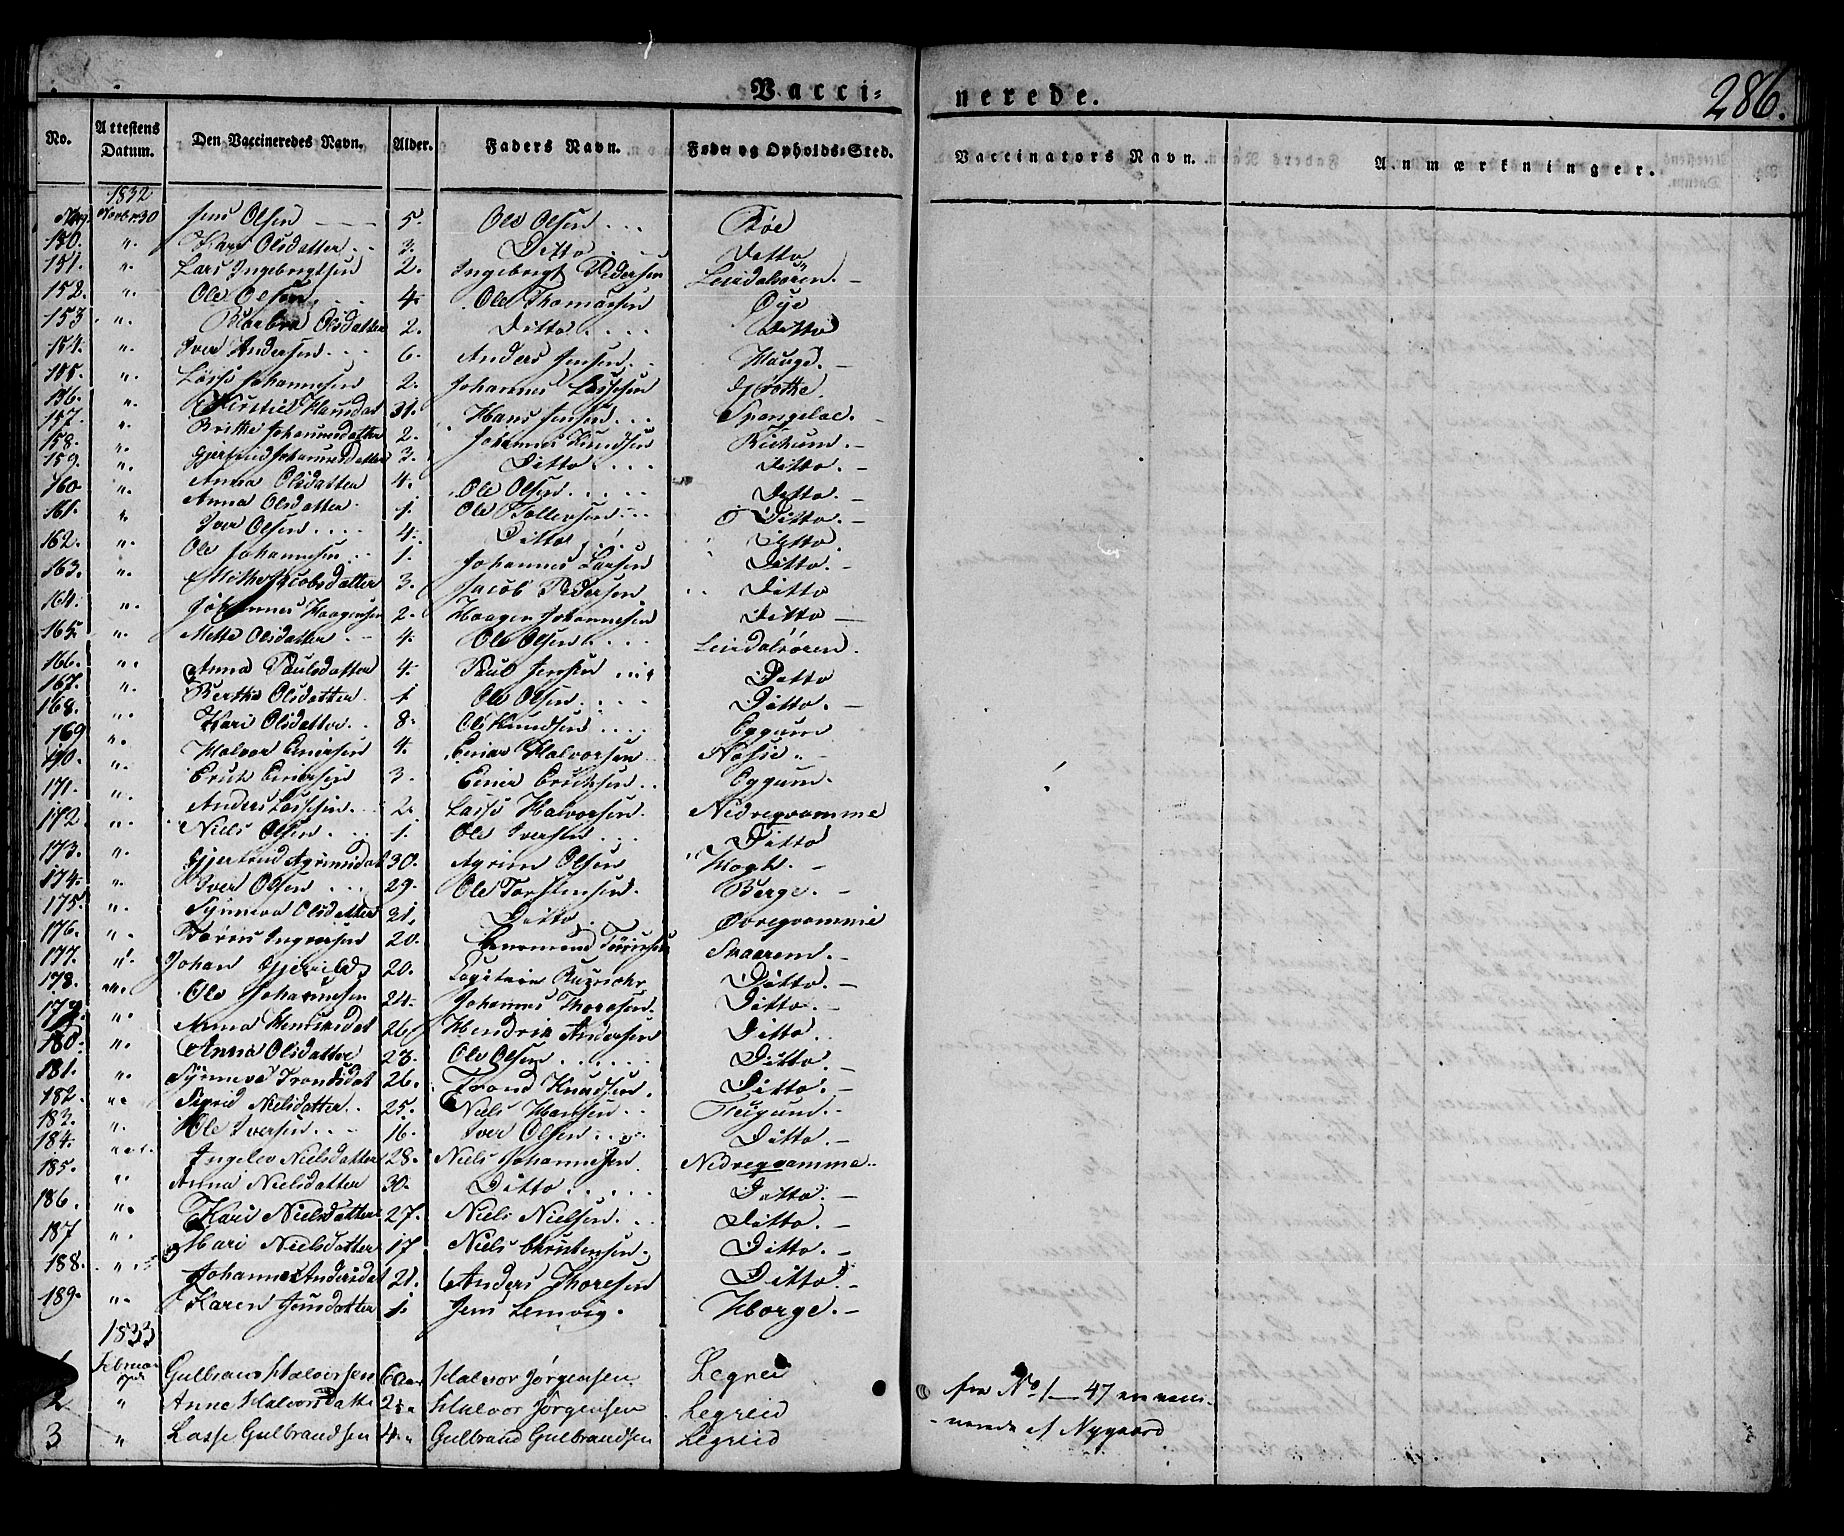 Vacci-
nerede.
286.
No. Attestens Datum. Den Vaccineredes Navn. Alder. Faders Navn. Føde- og Opholds-Sted. Vaccinators Navn. Anmærkninger.
1832
Novbr. 30 Jens Olsen 5. Ole Olsen Bøe
150. " Kari Olsdatter 3. Ditto Ditto
151. " Lars Ingebrigtsen 2. Ingebrigt Pedersen Leirdalsøren.
152. " Ole Olsen 4. Ole Thomassen Øye
153. " Olsdatter 2. Ditto Ditto
154. " Iver Andersen 6. Anders Jensen Hauge.
155. " Lasse Johannesen 2. Johannes Lassesen
156. " Hansdat 31. Hans Jensen Spangelae.
157. " Britha Johannesdatter 2. Johannes Knudsen Rickum.
158. " Gjertrud Johannesdatter 3. Ditto Ditto.
159. " Anna Olsdatter 4. Ole Olsen Ditto.
160. " Anna Olsdatter 1. Ole Tollevsen Ditto.
161. " Iver Olsen 4. Ditto Ditto.
162. " Ole Johannesen 1. Johannes Larsen Ditto.
163. " Mitha Jacobsdatter 3. Jacob Pedersen Ditto
164. " Johannes Haagensen 2. Haagen Johannesen Ditto
165. " Mette Olsdatter 4. Ole Olsen Leirdalsøren.
166. " Anna Paulsdatter 4. Paul Jensen Ditto
167. " Bertha Olsdatter 1 Ole Olsen Ditto.
168. " Kari Olsdatter 8. Ole Knudsen Eggum
169 " Halvor Einersen 4. Einar Halvorsen
170. " Erick Einersen 3. Einer Ericksen Eggum.
171. " Anders Lassesen 2. Lasse Halvorsen Nedreqvamme
172. " Niels Olsen 1. Ole Iversen Ditto
173. " Gjertrud Agrimsdat 30. Agrim Olsen
174. " Iver Olsen 29. Ole Torstensen. Berge.
175. " Synneva Olsdatter 31. Ditto Øvreqvamme
176. " Ingversen 20. Skaarem.
177. " Johan 20. Capitain Ditto.
178. " Ole Johannesen 24. Johannes Thoresen. Ditto.
179. " Anna Hendriksdat 26 Hendrik Andersen Ditto.
180. " Anna Olsdatter 23. Ole Olsen Ditto.
181. " Synneva Trondsdat 26. Trond Knudsen. Ditto.
182. " Sigrid Nielsdatter 25. Niels Hansen
183. " Ole Iversen 16. Iver Olsen Ditto.
184. " Ingelev Nielsdatter 28. Niels Johannesen Nedreqvamme.
185. " Anna Nielsdatter 30. Ditto Ditto.
186. " Kari Nielsdatter 27. Niels Nielsen. Ditto.
187 " Mari Nielsdatter 17 Niels Christensen. Ditto.
188. " Johanne Andersdat 21. Anders Thoresen Ditto.
189. " Karen Jensdatter 1. Jens Lemvig. Horge.
1833
1 Februar Gulbrand Halvorsen 6 Aar Halvor Jørgensen Legreid
2 " Anne Halvorsdatter 2 Halvor Jørgensen Legreid
3 " Lasse Gulbrandsen 4 Gulbrand Gulbrandsen Legreid
fra No 1 — 47 ere vacci-
nerede af Nygaard